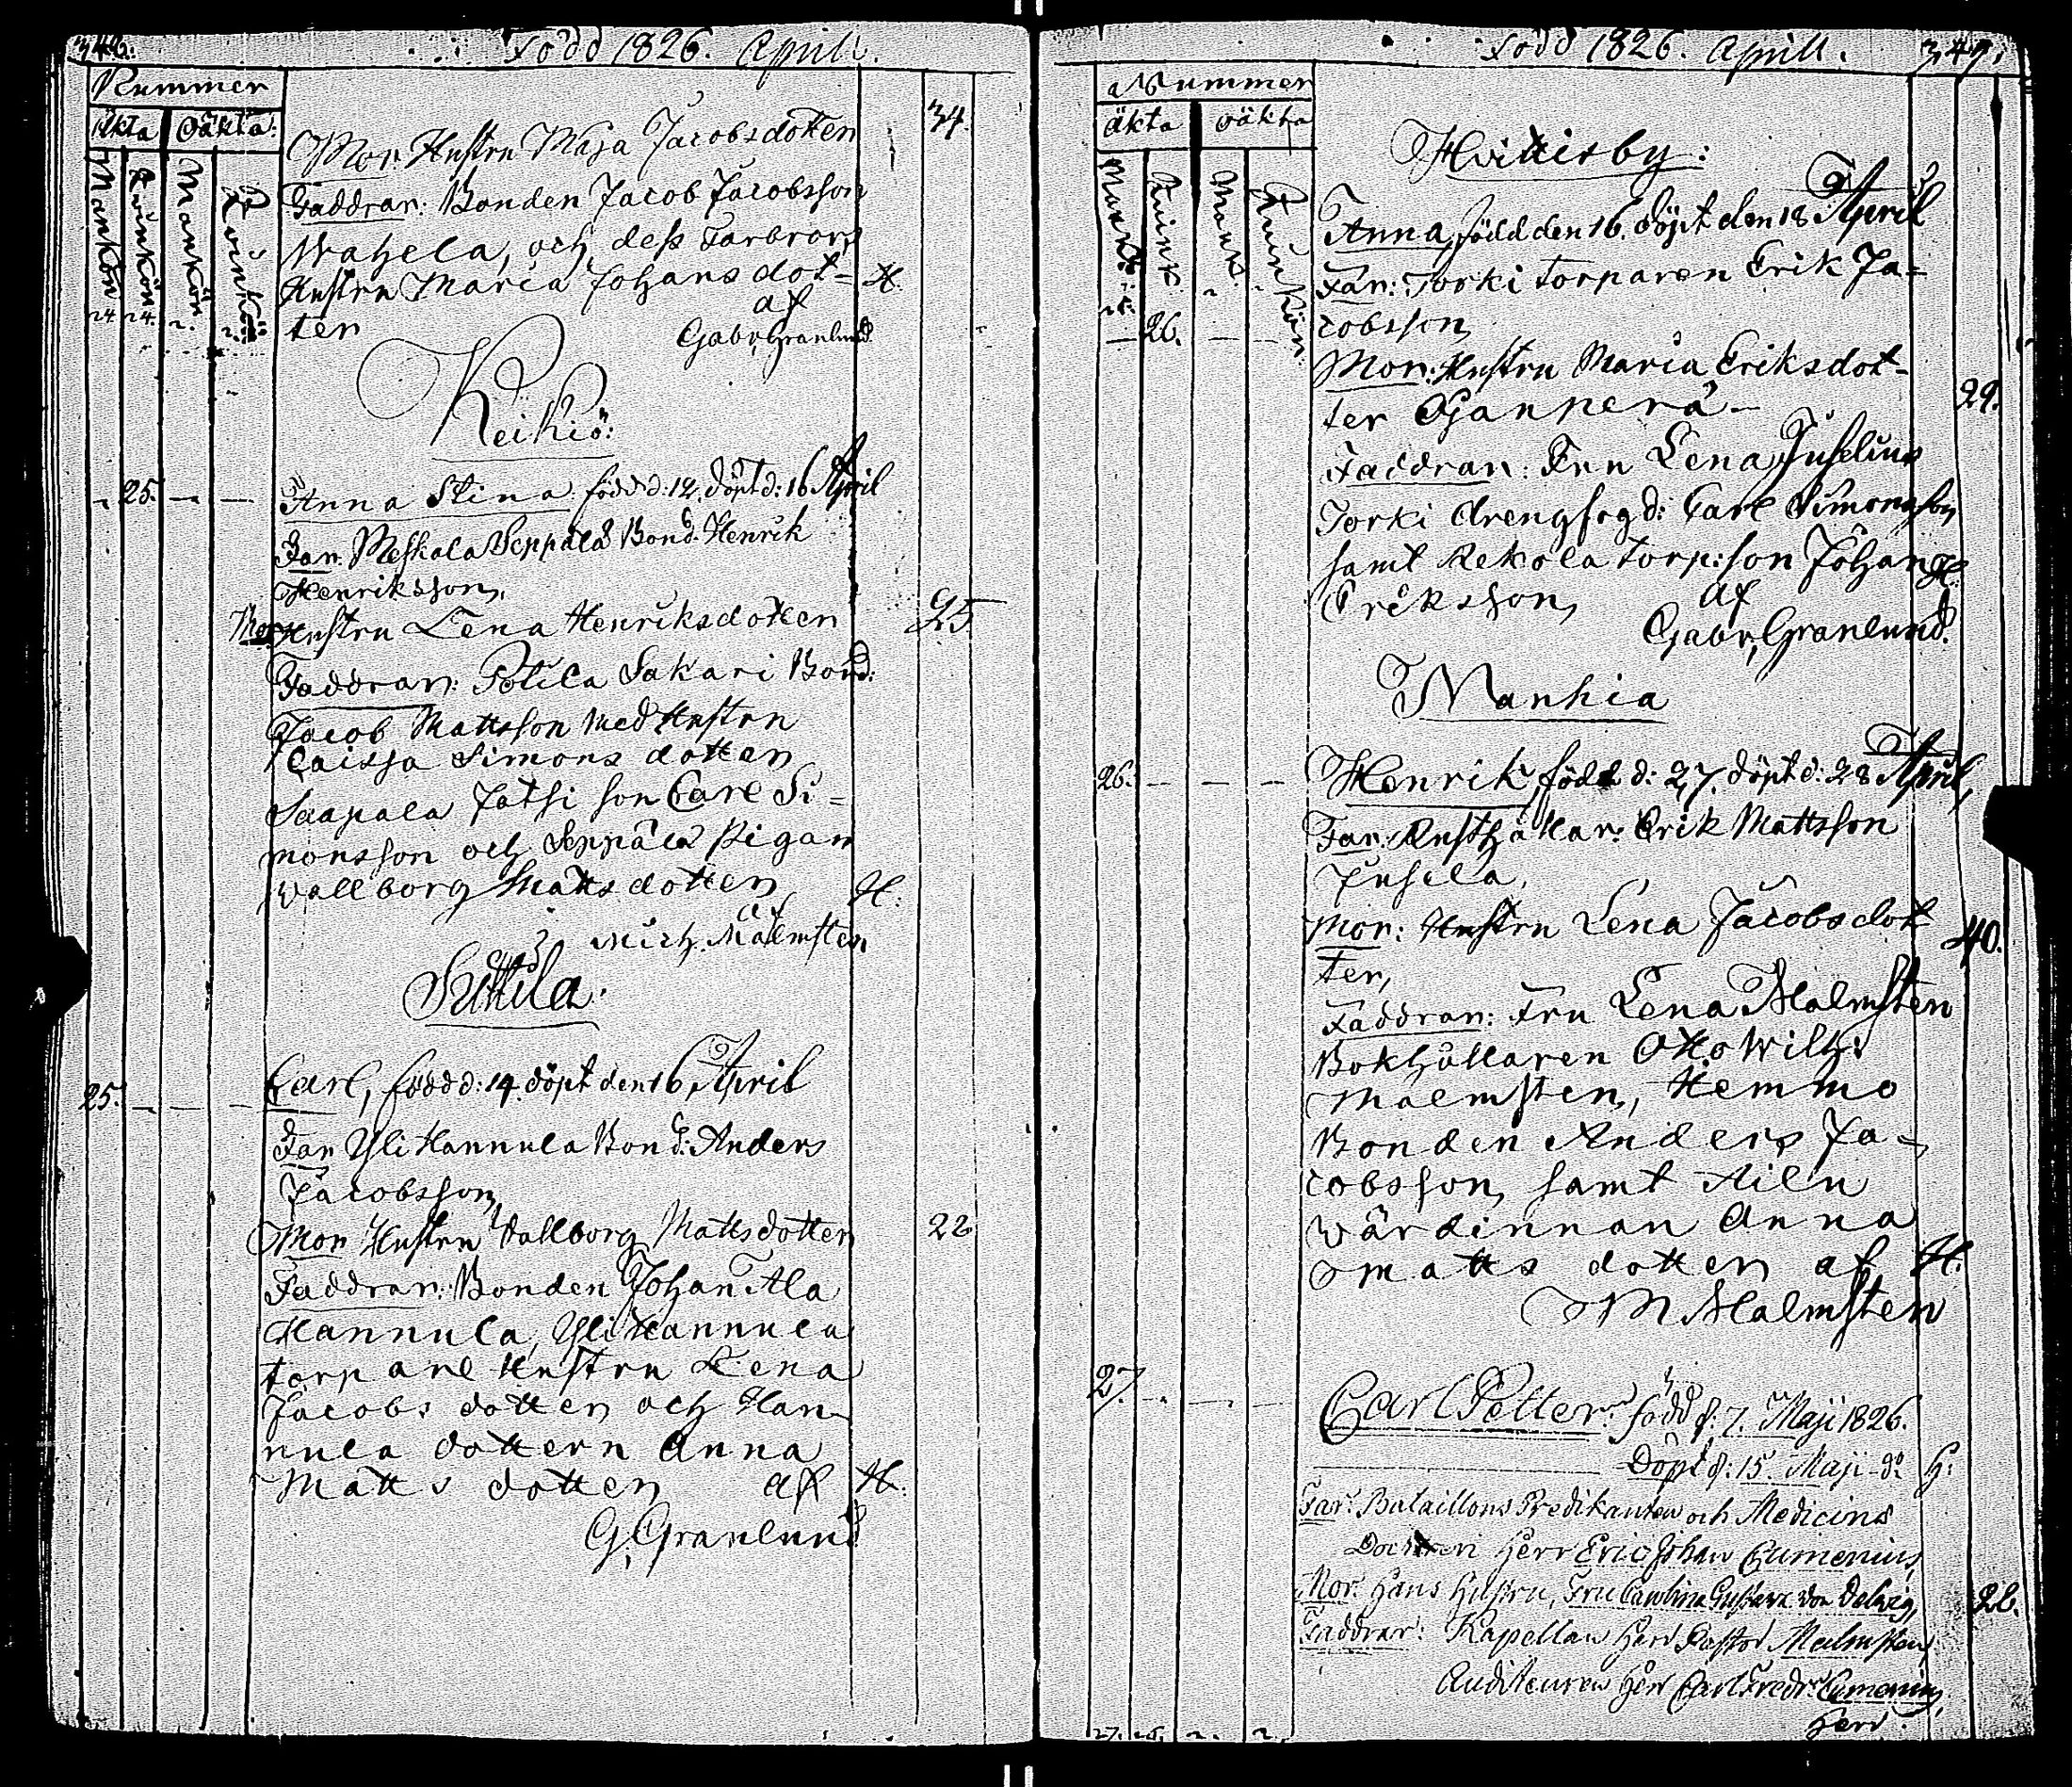 346.
Född 1826. April.
Nummer
Äkta oäkta:
Mankön Qvinkön Mankön Qvinkön
24. 24. 2. 2.
Mor. Hustru Maja Jacobsdotter 34.
Faddrar: Bonden Jacob Jacobsson
Wahela, och dess Farbrors
Hustru Maria Johansdot- H.
ter af
Gabr. Granlund
Keikiö:
25. Anna Stina född d: 12. döpt d: 16 April
Far. Meskala Seppälä Bond. Henrik
Henriksson,
Mor Hustru Lena Henriksdotter 25
Faddrar: Potila Sakari Bond:
Jacob Mattsson med Hustru
Caissa Simons dotter
Jatsi son Carl Si=
monsson och Seppälä Pigan
Wallborg Matts dotter H:
af
Mich. Malmsten
Suttila.
25. Carl, född d: 14. döpt den 16 April
Far Yli Hannula Bond: Anders
Jacobsson,
Mor Hustru Wallborg Mattsdotter 22
Faddrar: Bonden Johan Ala
Hannula, Yli Hannula
torpare Hustru Lena
Jacobs dotter och Han-
nula dottern Anna
Matts dotter af H.
G. Granlund
Född 1826. Aprill. 347.
Nummer
äkta oäkta
Mank. Qvink. Mank. Qvinkön
Hvittisby:
26. Anna, född den 16. döpt den 18 April
Far: Torki torparen Erik Ja-
cobsson,
Mor: Hustru Maria Eriksdot-
ter Ojanperä 29.
Faddrar: Fru Lena Juselius
Torki drengfogd: Carl Simonsson
samt Rekola torp: son Johan H.
Eriksson, af
Gabr. Granlund.
Manhia
26. Henrik, född d: 27. döpt d: 28 April,
Far: Rusthållar: Erik Mattsson
Jusela,
Mor: Hustru Lena Jacobsdot 40.
ter,
Faddrar: Fru Lena Malmsten
Bokhållaren Otto Wilh:
Malmsten, Hemmo
Bonden Anders Ja-
cobsson, samt Ailu
wärdinnan Anna
Matts dotter af H.
M Malmsten
27. Carl Petter: född d: 7. Maji 1826.
Döpt d: 15. Maji d:o H:
Far: Bataillons Predikanten och Medicins
Doctoren Herr Eric Johan Eumenius,
Mor: Hans Hustru, Fru Carolina Gustava von Delwig, 22.
Faddrar: Kapellan Herr Pastor Malmsten,
Auditeuren Herr Carl Fredr. Eumenius,
Herr
27. 26. 2. 2.